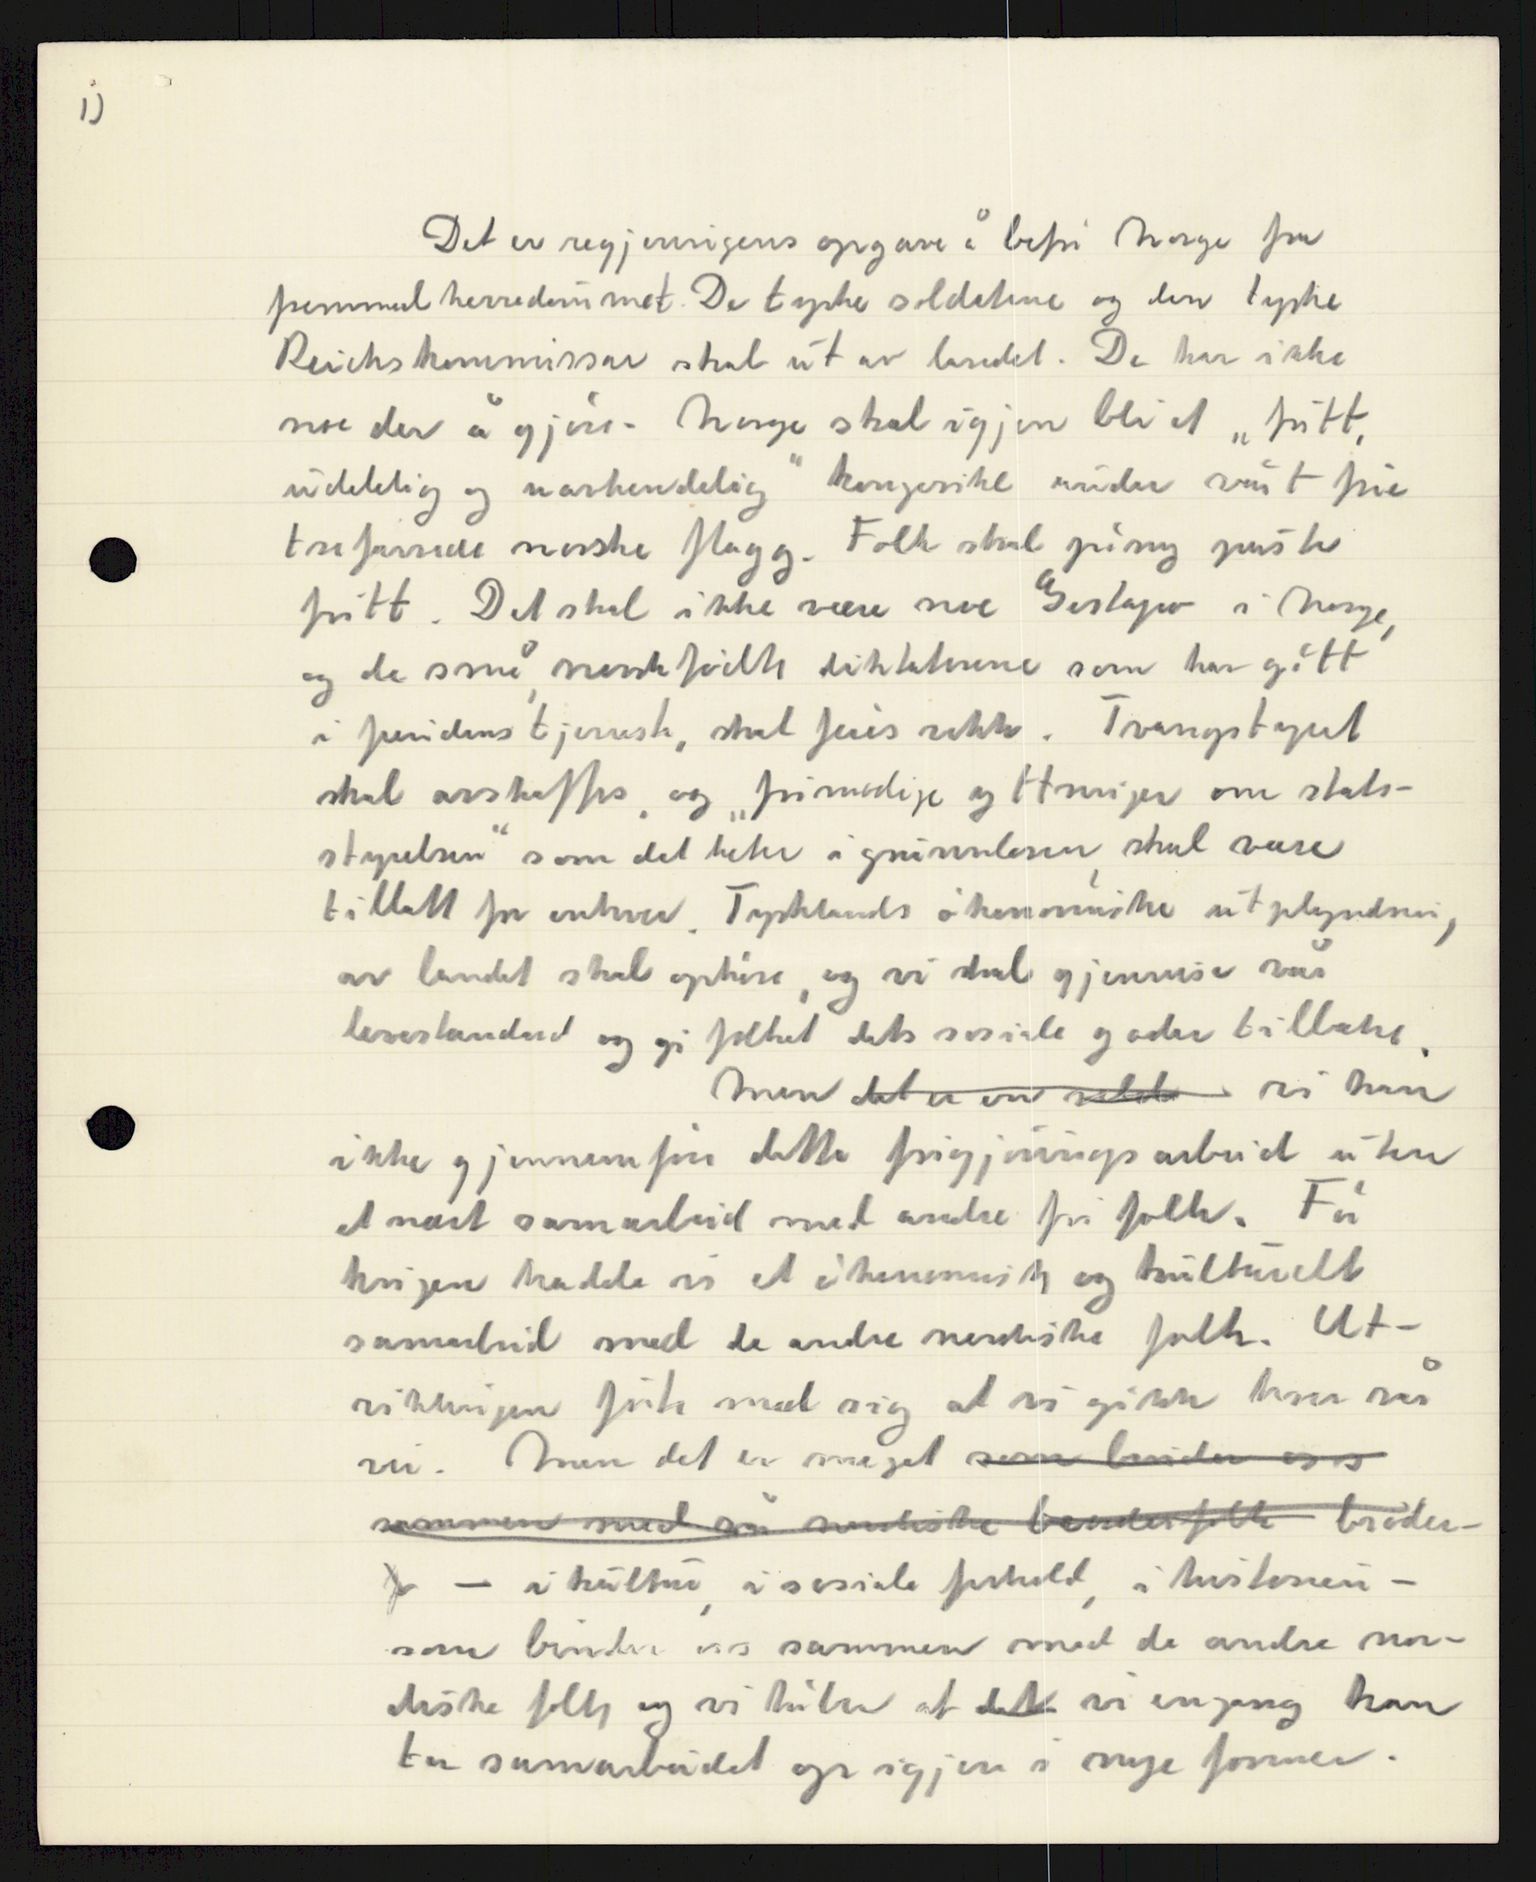 1)
Det er regjeringens opgave å befri Norge fra
fremmedherredømmet. De tyske soldatene og den tyske
Reichskommissar skal ut av landet. De har ikke
noe der å gjøre. Norge skal igjen bli et „fritt,
udelelig og uavhendelig" kongerike under vårt frie
trefarvede norske flagg. Folk skal på ny puste
fritt. Det skal ikke være noe Gestapo i Norge,
og de små, norskfødte diktatorene som har gått
i fiendens tjeneste, skal feies vekk. Tvangstapet
skal avskaffes, og „frimodige yttringer om stats-
styrelsen" som det heter i grunnloven, skal være
tillatt for enhver. Tysklands økonomiske utplyndring
av landet skal ophøre, og vi skal gjenreise vår
levestandard og gi folket dets sosiale goder tilbake.
Men det er en vi kan
ikke gjennemføre dette frigjøringsarbeid uten
et nært samarbeid med andre fri folk. Før
krigen hadde vi et økonomisk og kulturelt
samarbeid med de andre nordiske folk. Ut-
viklingen førte med sig at vi gikk hver vår
vei. Men det er meget som binder oss
sammen med vår nordiske broderfolk broder-
— i kultur, i sosiale forhold, i historien —
som binder oss sammen med de andre nor-
diske folk og vi håber at det vi engang kan
ta samarbeidet op igjen i nye former.